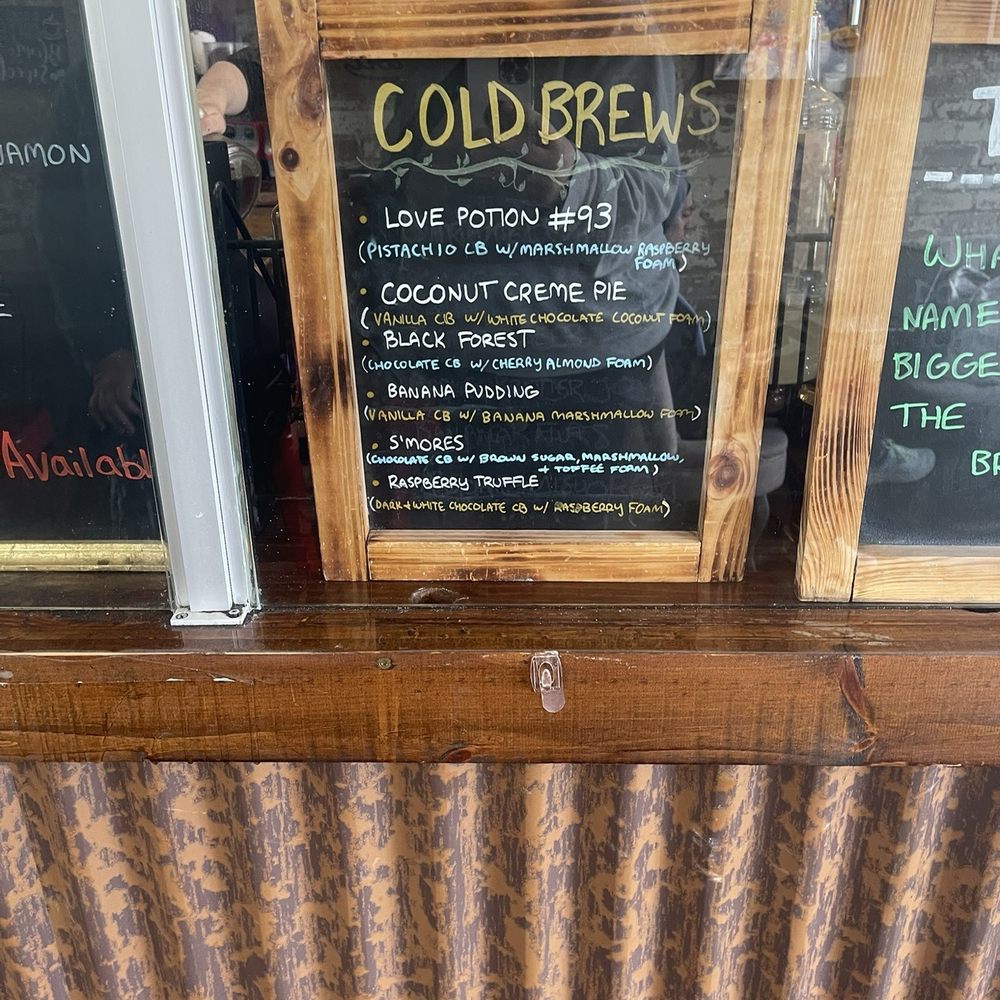 COLD BREWS
• LOVE POTION #93
(PISTACHIO CB W/MARSHMALLOW RASPBERRY
FOAM)
• COCONUT CREME PIE
(VANILLA CB W/WHITE CHOCOLATE COCONUT FOAM)
• BLACK FOREST
(CHOCOLATE CB W/ CHERRY ALMOND FOAM)
• BANANA PUDDING
(VANILLA CB W/ BANANA MARSHMALLOW FOAM)
• S'MORES
(CHOCOLATE CB W/ BROWN SUGAR, MARSHMALLOW,
+ TOFFEE FOAM)
• RASPBERRY TRUFFLE
(DARK+WHITE CHOCOLATE CB W/ RASPBERRY FOAM)
Available
NAME
THE